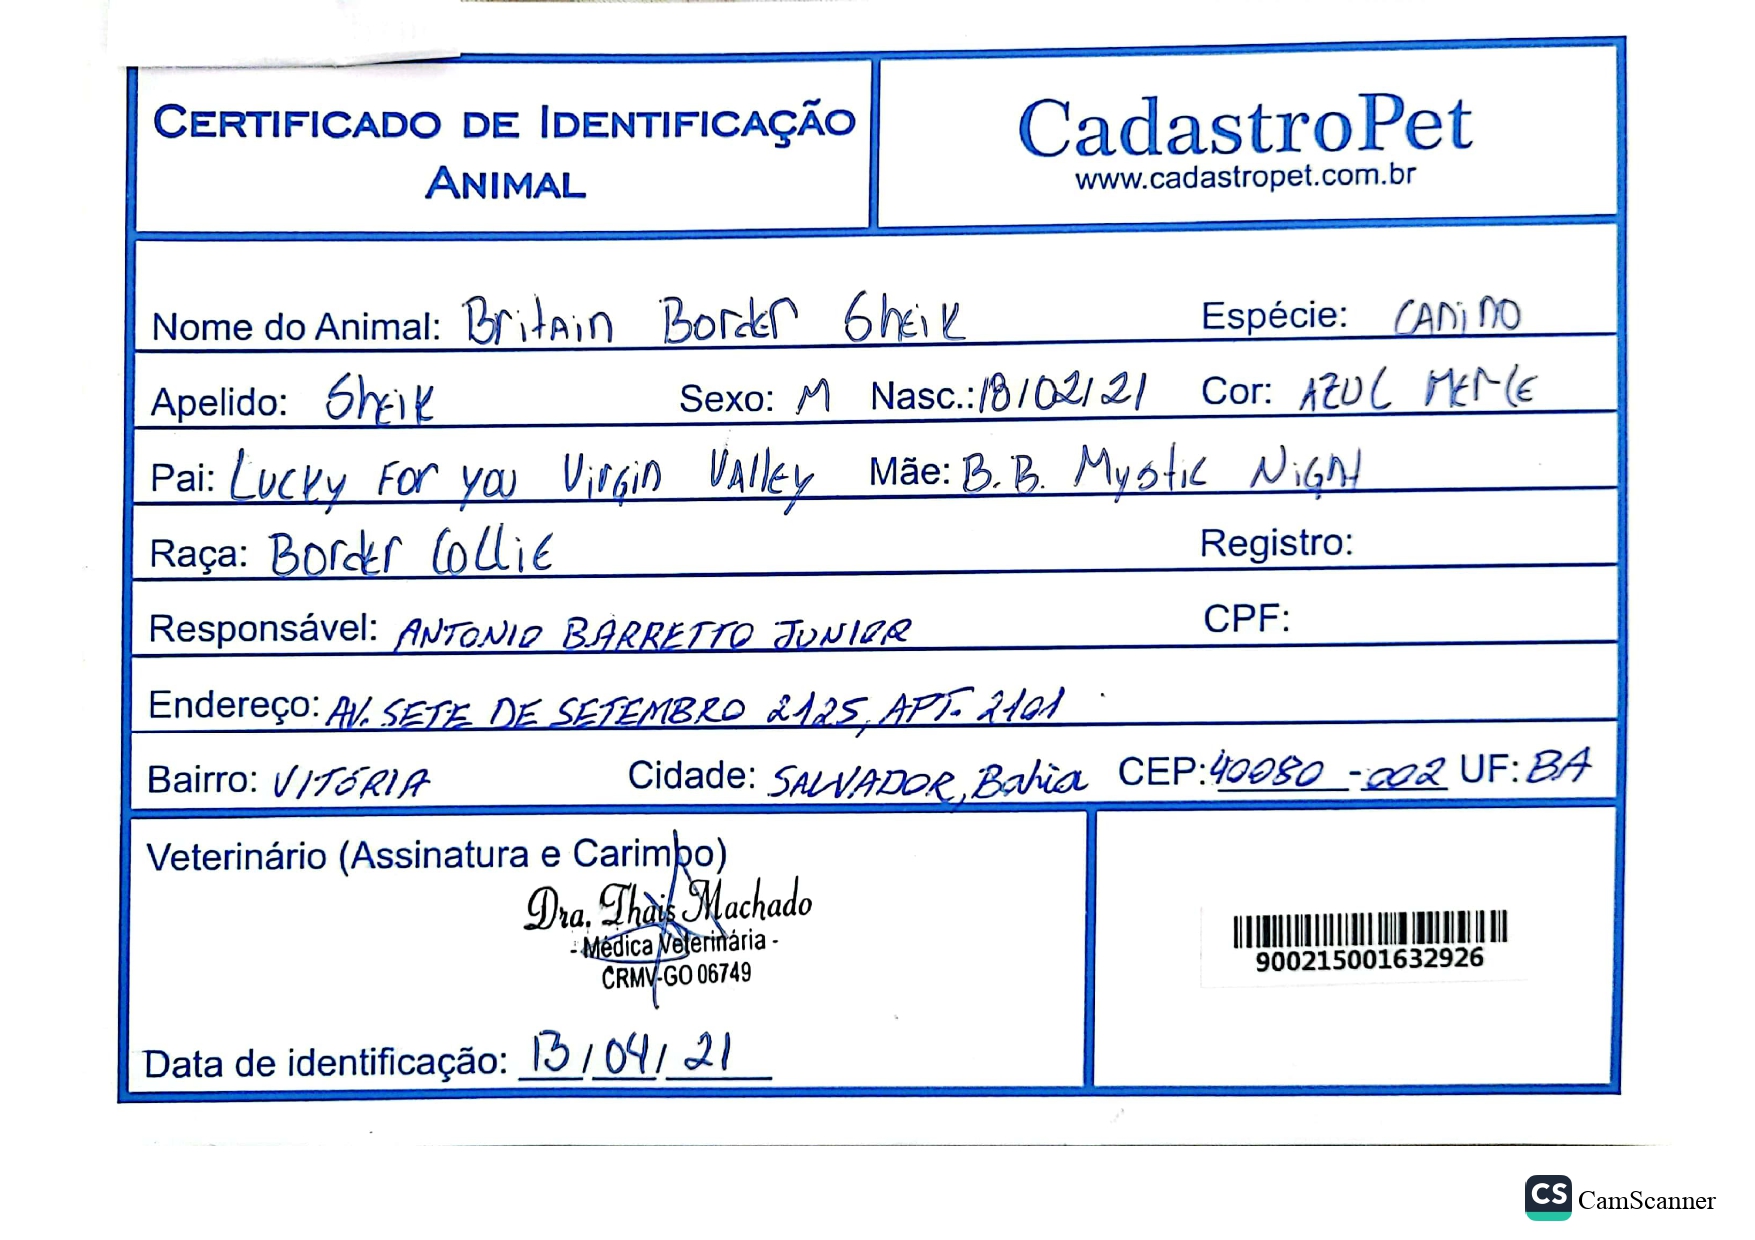 CERTIFICADO DE IDENTIFICAÇÃO
ANIMAL
CadastroPet
www.cadastropet.com.br
Nome do Animal: Britain Border Sheik Espécie: CANINO
Apelido: Sheik Sexo: M Nasc.: 18/02/21 Cor: AZUL MERLE
Pai: Lucky For you Virgin Valley Mãe: B.B. Mystic Night
Raça: Border Collie Registro:
Responsável: ANTONIO BARRETTO JUNIOR CPF:
Endereço: AV. SETE DE SETEMBRO 2125, APT. 2101
Bairro: VITÓRIA Cidade: SALVADOR, Bahia CEP: 40080-002 UF: BA
Veterinário (Assinatura e Carimbo)
Dra. Thais Machado
- Médica Veterinária -
CRMV-GO 06749
900215001632926
Data de identificação: 13/04/21
CS CamScanner